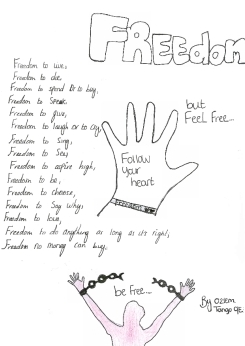 FReedom
Freedom to live,
Freedom to die,
Freedom to spend Or to buy,
Freedom to Speak,
Freedom to give,
Freedom to laugh or to Cry,
Freedom to Sing,
Freedom to Say,
Freedom to aspire high,
Freedom to be,
Freedom to choose,
Freedom to Say Why,
Freedom to love,
Freedom to do anything as long as its right,
Freedom no money can buy,
but
Feel Free...
Follow
Your
heart
be Free...
By
Tango 9E